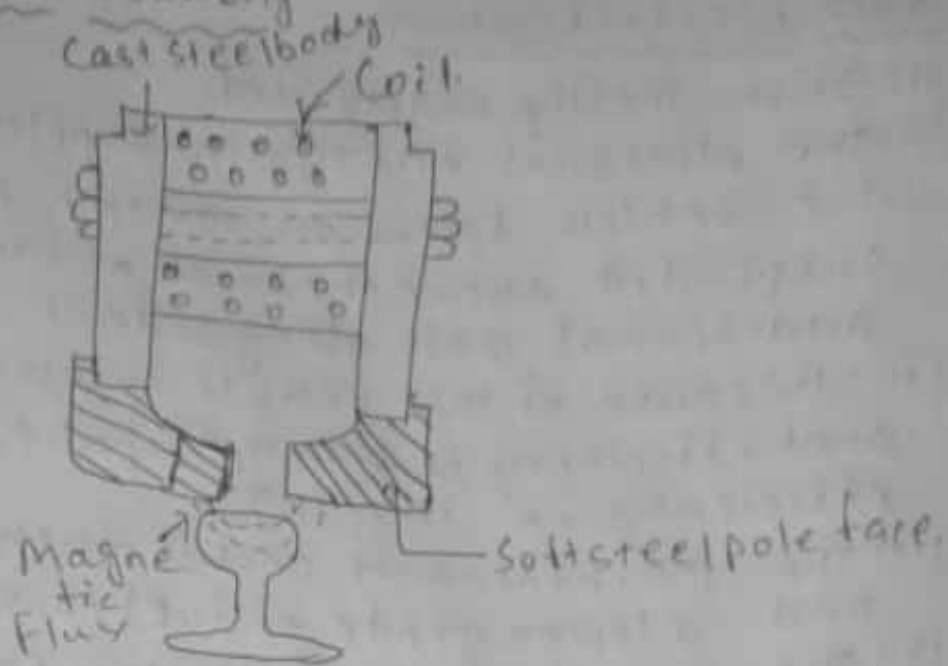 Cast steel body
Coil.
Magne
tic
Flux
Soft steel pole face.